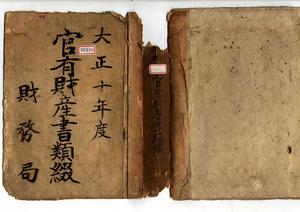 大正十年度
官有財産書類綴
財務局